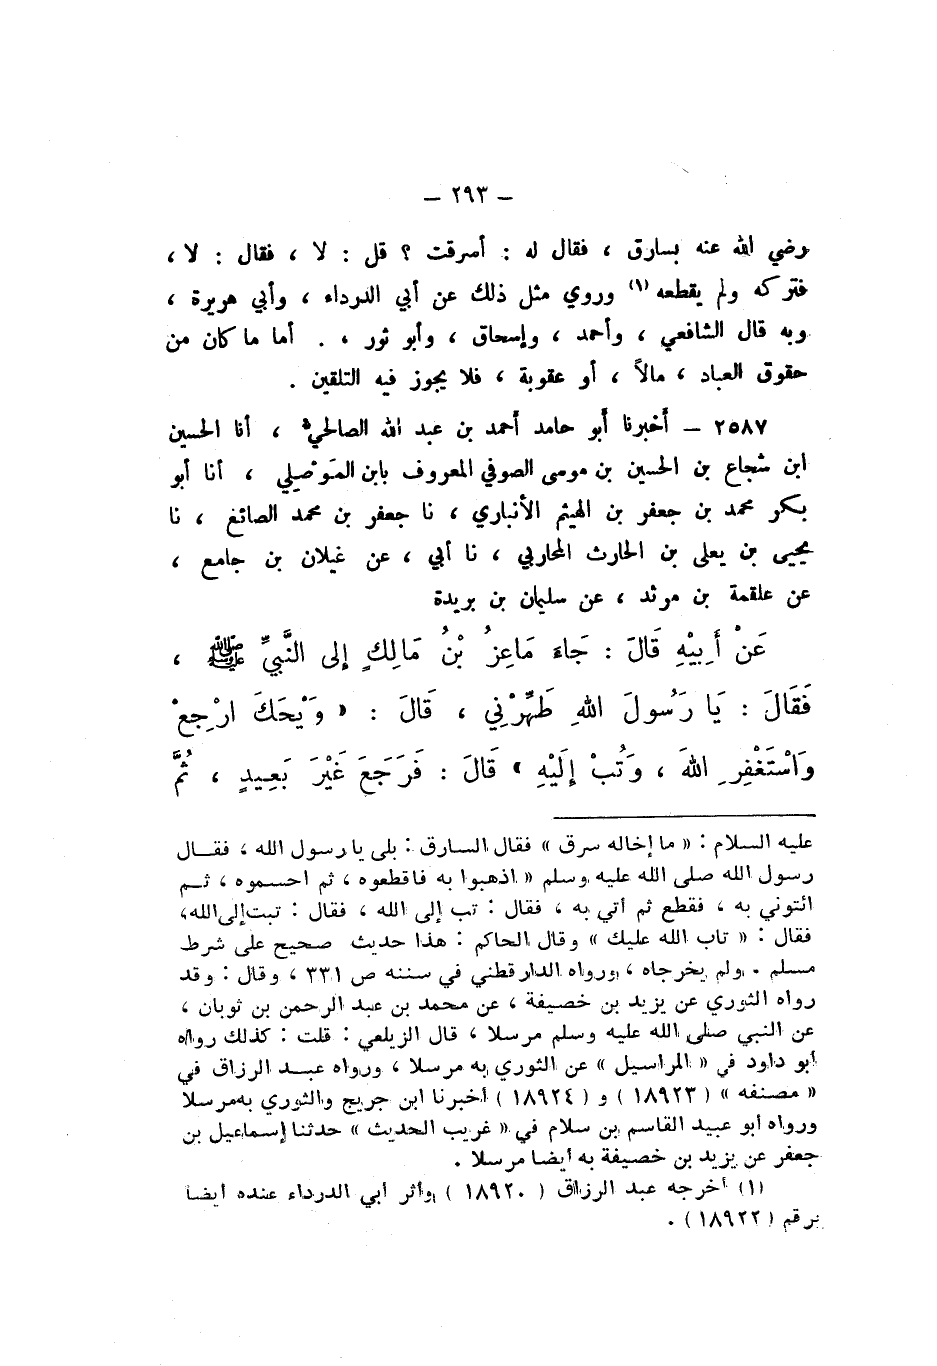 – ٢٩٣ –
رضي الله عنه بسارق ، فقال له : أسرقت ؟ قل : لا ، فقال : لا ،
فتركه ولم يقطعه (١) وروي مثل ذلك عن أبي الدرداء ، وأبي هريرة ،
وبه قال الشافعي ، وأحمد ، وإسحاق ، وأبو ثور ، . أما ما كان من
حقوق العباد ، مالاً ، أو عقوبة ، فلا يجوز فيه التلقين .
٢٥٨٧ – أخبرنا أبو حامد أحمد بن عبد الله الصالحي ، أنا الحسين
ابن شجاع بن الحسين بن موسى الصوفي المعروف بابن المَوْصِلي ، أنا أبو
بكر محمد بن جعفر بن الهيثم الأنباري ، نا جعفر بن محمد الصائغ ، نا
يحيى بن يعلى بن الحارث المحاربي ، نا أبي ، عن غيلان بن جامع ،
عن علقمة بن مرثد ، عن سليمان بن بريدة
عَنْ أَبِيْهِ قَالَ : جَاءَ مَاعِزُ بْنُ مَالِكٍ إلى النَّبِيِّ ﷺ ،
فَقَالَ : يَا رَسُولَ اللهِ طَهِّرْنِي ، قَالَ : « وَيْحَكَ ارْجِعْ
وَاسْتَغْفِرِ اللهَ ، وَتُبْ إِلَيْهِ » قَالَ : فَرَجَعَ غَيْرَ بَعِيدٍ ، ثُمَّ
عليه السلام : « ما إخاله سرق » فقال السارق : بلى يا رسول الله ، فقال
رسول الله صلى الله عليه وسلم « اذهبوا به فاقطعوه ، ثم احسموه ، ثم
ائتوني به ، فقطع ثم أتي به ، فقال : تب إلى الله ، فقال : تبت إلى الله ،
فقال : « تاب الله عليك » وقال الحاكم : هذا حديث صحيح على شرط
مسلم . ولم يخرجاه ، ورواه الدارقطني في سننه ص ٣٣١ ، وقال : وقد
رواه الثوري عن يزيد بن خصيفة ، عن محمد بن عبد الرحمن بن ثوبان ،
عن النبي صلى الله عليه وسلم مرسلا ، قال الزيلعي : قلت : كذلك رواه
أبو داود في « المراسيل » عن الثوري به مرسلا ، ورواه عبد الرزاق في
« مصنفه » ( ١٨٩٢٣ ) و ( ١٨٩٢٤ ) أخبرنا ابن جريج والثوري به مرسلا
ورواه أبو عبيد القاسم بن سلام في « غريب الحديث » حدثنا إسماعيل بن
جعفر عن يزيد بن خصيفة به أيضا مرسلا .
(١) أخرجه عبد الرزاق ( ١٨٩٢٠ ) وأثر أبي الدرداء عنده أيضا
برقم ( ١٨٩٢٢ ) .